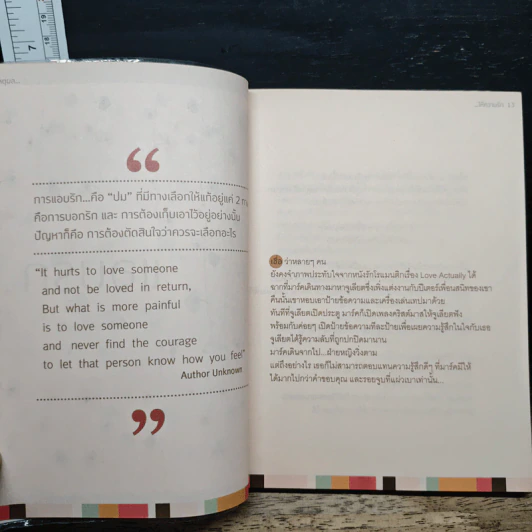 “
การแอบรัก...คือ “ปม” ที่มีทางเลือกให้แก้อยู่แค่ 2
คือการบอกรัก และ การต้องเก็บเอาไว้อยู่อย่างนั้น
ปัญหาก็คือ การต้องตัดสินใจว่าควรจะเลือกอะไร
“It hurts to love someone
and not be loved in return,
But what is more painful
is to love someone
and never find the courage
to let that person know how you feel”
Author Unknown
”
เชื่อ ว่าหลายๆ คน
ยังคงจำภาพประทับใจจากหนังรักโรแมนติกเรื่อง Love Actually ได้
ฉากที่มาร์คเดินทางมาหาจูเลียตซึ่งเพิ่งแต่งงานกับปีเตอร์เพื่อนสนิทของเขา
คืนนั้นเขาหอบเอาป้ายข้อความและเครื่องเล่นเทปมาด้วย
ทันทีที่จูเลียตเปิดประตู มาร์คก็เปิดเพลงคริสต์มาสให้จูเลียตฟัง
พร้อมกับค่อยๆ เปิดป้ายข้อความทีละป้ายเพื่อเผยความรู้สึกในใจกับเธอ
จูเลียตได้รู้ความลับที่ถูกปกปิดมานาน
มาร์คเดินจากไป...ฝ่ายหญิงวิ่งตาม
แต่ถึงอย่างไร เธอก็ไม่สามารถตอบแทนความรู้สึกดีๆ ที่มาร์คมีให้
ได้มากไปกว่าคำขอบคุณ และรอยจูบที่แผ่วเบาเท่านั้น...